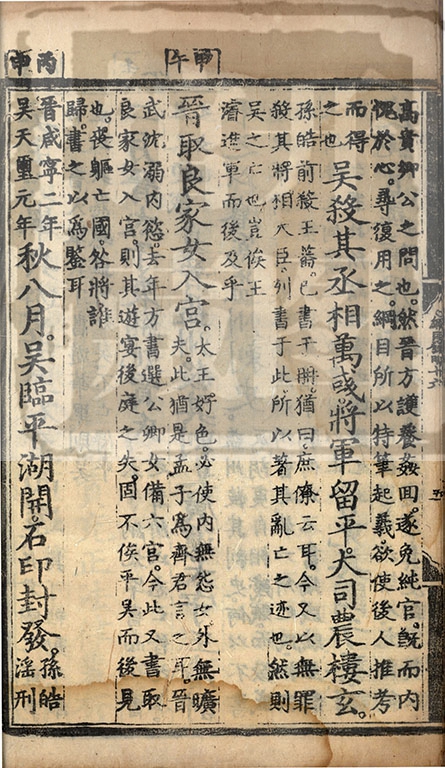 甲午
丙申
高貴鄉公之問也。然晉方護養姦回。遂免純官。旣而內
愧於心。尋復用之。綱目所以特筆起義欲使後人推考
而得
之也
吳殺其丞相萬彧。將軍留平。大司農樓玄。
孫皓前殺王蕃。已書于冊。猶曰庶僚云耳。今又以無罪
殺其將相大臣。列書于此所以著其亂亡之迹也。然則
吳之亡也豈俟王
濬進軍而後及乎
晉取良家女入宮。
太王好色。必使內無怨女外無曠
夫。此猶是孟子爲齊君言之耳。晉
武沈溺內慾。去年方書選公卿女備六宮。今此又書取
良家女入宮。則其遊宴後庭之失。固不俟平吳而後見
也。喪軀亡國。咎將誰
歸。書之以爲鑒耳
晉咸寧二年
吳天璽元年
秋八月。吳臨平湖開。石印封發。
孫皓
淫刑